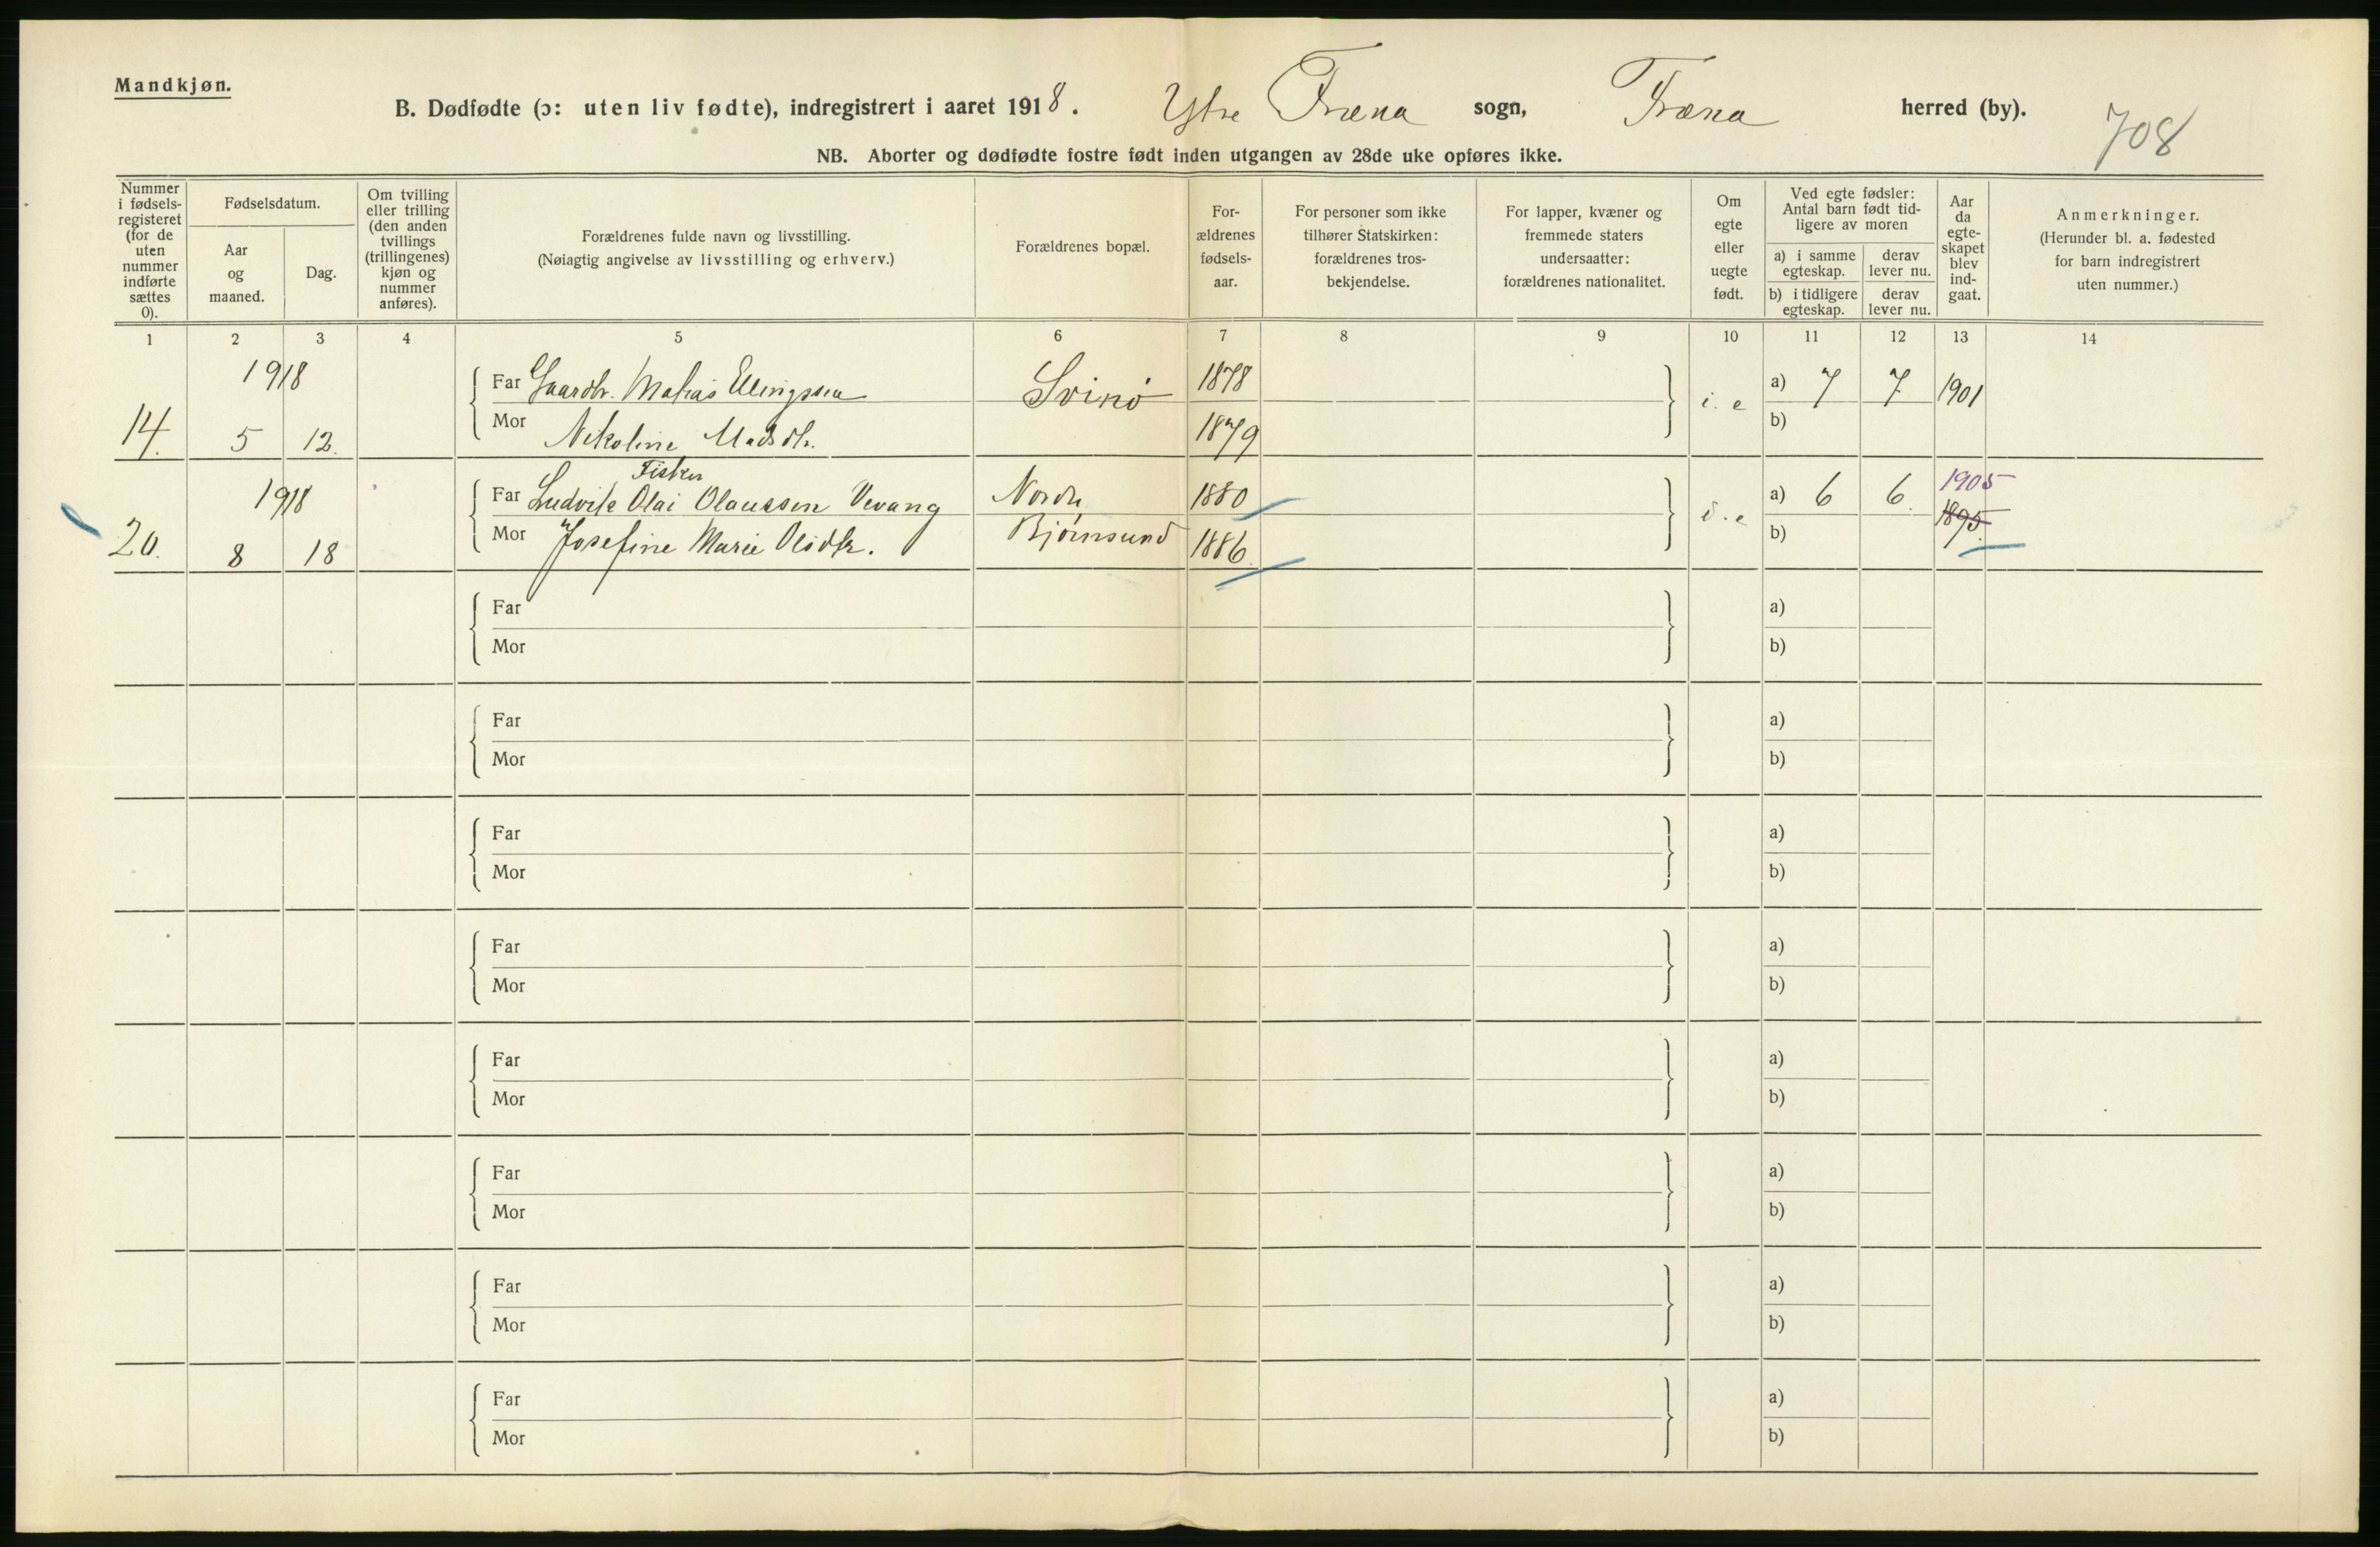 Mandkjøn.
B. Dødfødte (ɔ: uten liv fødte), indregistrert i aaret 1918. Ytre Fræna sogn, Fræna herred (by).
708
NB. Aborter og dødfødte fostre født inden utgangen av 28de uke opføres ikke.
Nummer i fødsels-registeret (for de uten nummer indførte sættes 0).
Fødselsdatum.
Aar og maaned.
Dag.
Om tvilling eller trilling (den anden tvillings (trillingenes) kjøn og nummer anføres).
Forældrenes fulde navn og livsstilling.
(Nøiagtig angivelse av livsstilling og erhverv.)
Forældrenes bopæl.
For-ældrenes fødsels-aar.
For personer som ikke tilhører Statskirken: forældrenes tros-bekjendelse.
For lapper, kvæner og fremmede staters undersaatter: forældrenes nationalitet.
Om egte eller uegte født.
Ved egte fødsler: Antal barn født tid-ligere av moren
a) i samme egteskap.
derav lever nu.
b) i tidligere egteskap.
derav lever nu.
Aar da egte-skapet blev ind-gaat.
Anmerkninger.
(Herunder bl. a. fødested for barn indregistrert uten nummer.)
1 2 3 4 5 6 7 8 9 10 11 12 13 14
1918
Far Gaardbr. Matias Ellingssen Svinø 1878 i. e a) 7 7 1901
14. 5 12. Mor Nikoline Madsdtr. 1879 b)
Fisker
1918 Far Ludvik Olai Olaussen Vevang Nordre 1880 i. e a) 6 6. 1905
1895.
20. 8 18 Mor Josefine Marie Olsdtr. Bjørnsund 1886. b)
Far a)
Mor b)
Far a)
Mor b)
Far a)
Mor b)
Far a)
Mor b)
Far a)
Mor b)
Far a)
Mor b)
Far a)
Mor b)
Far a)
Mor b)